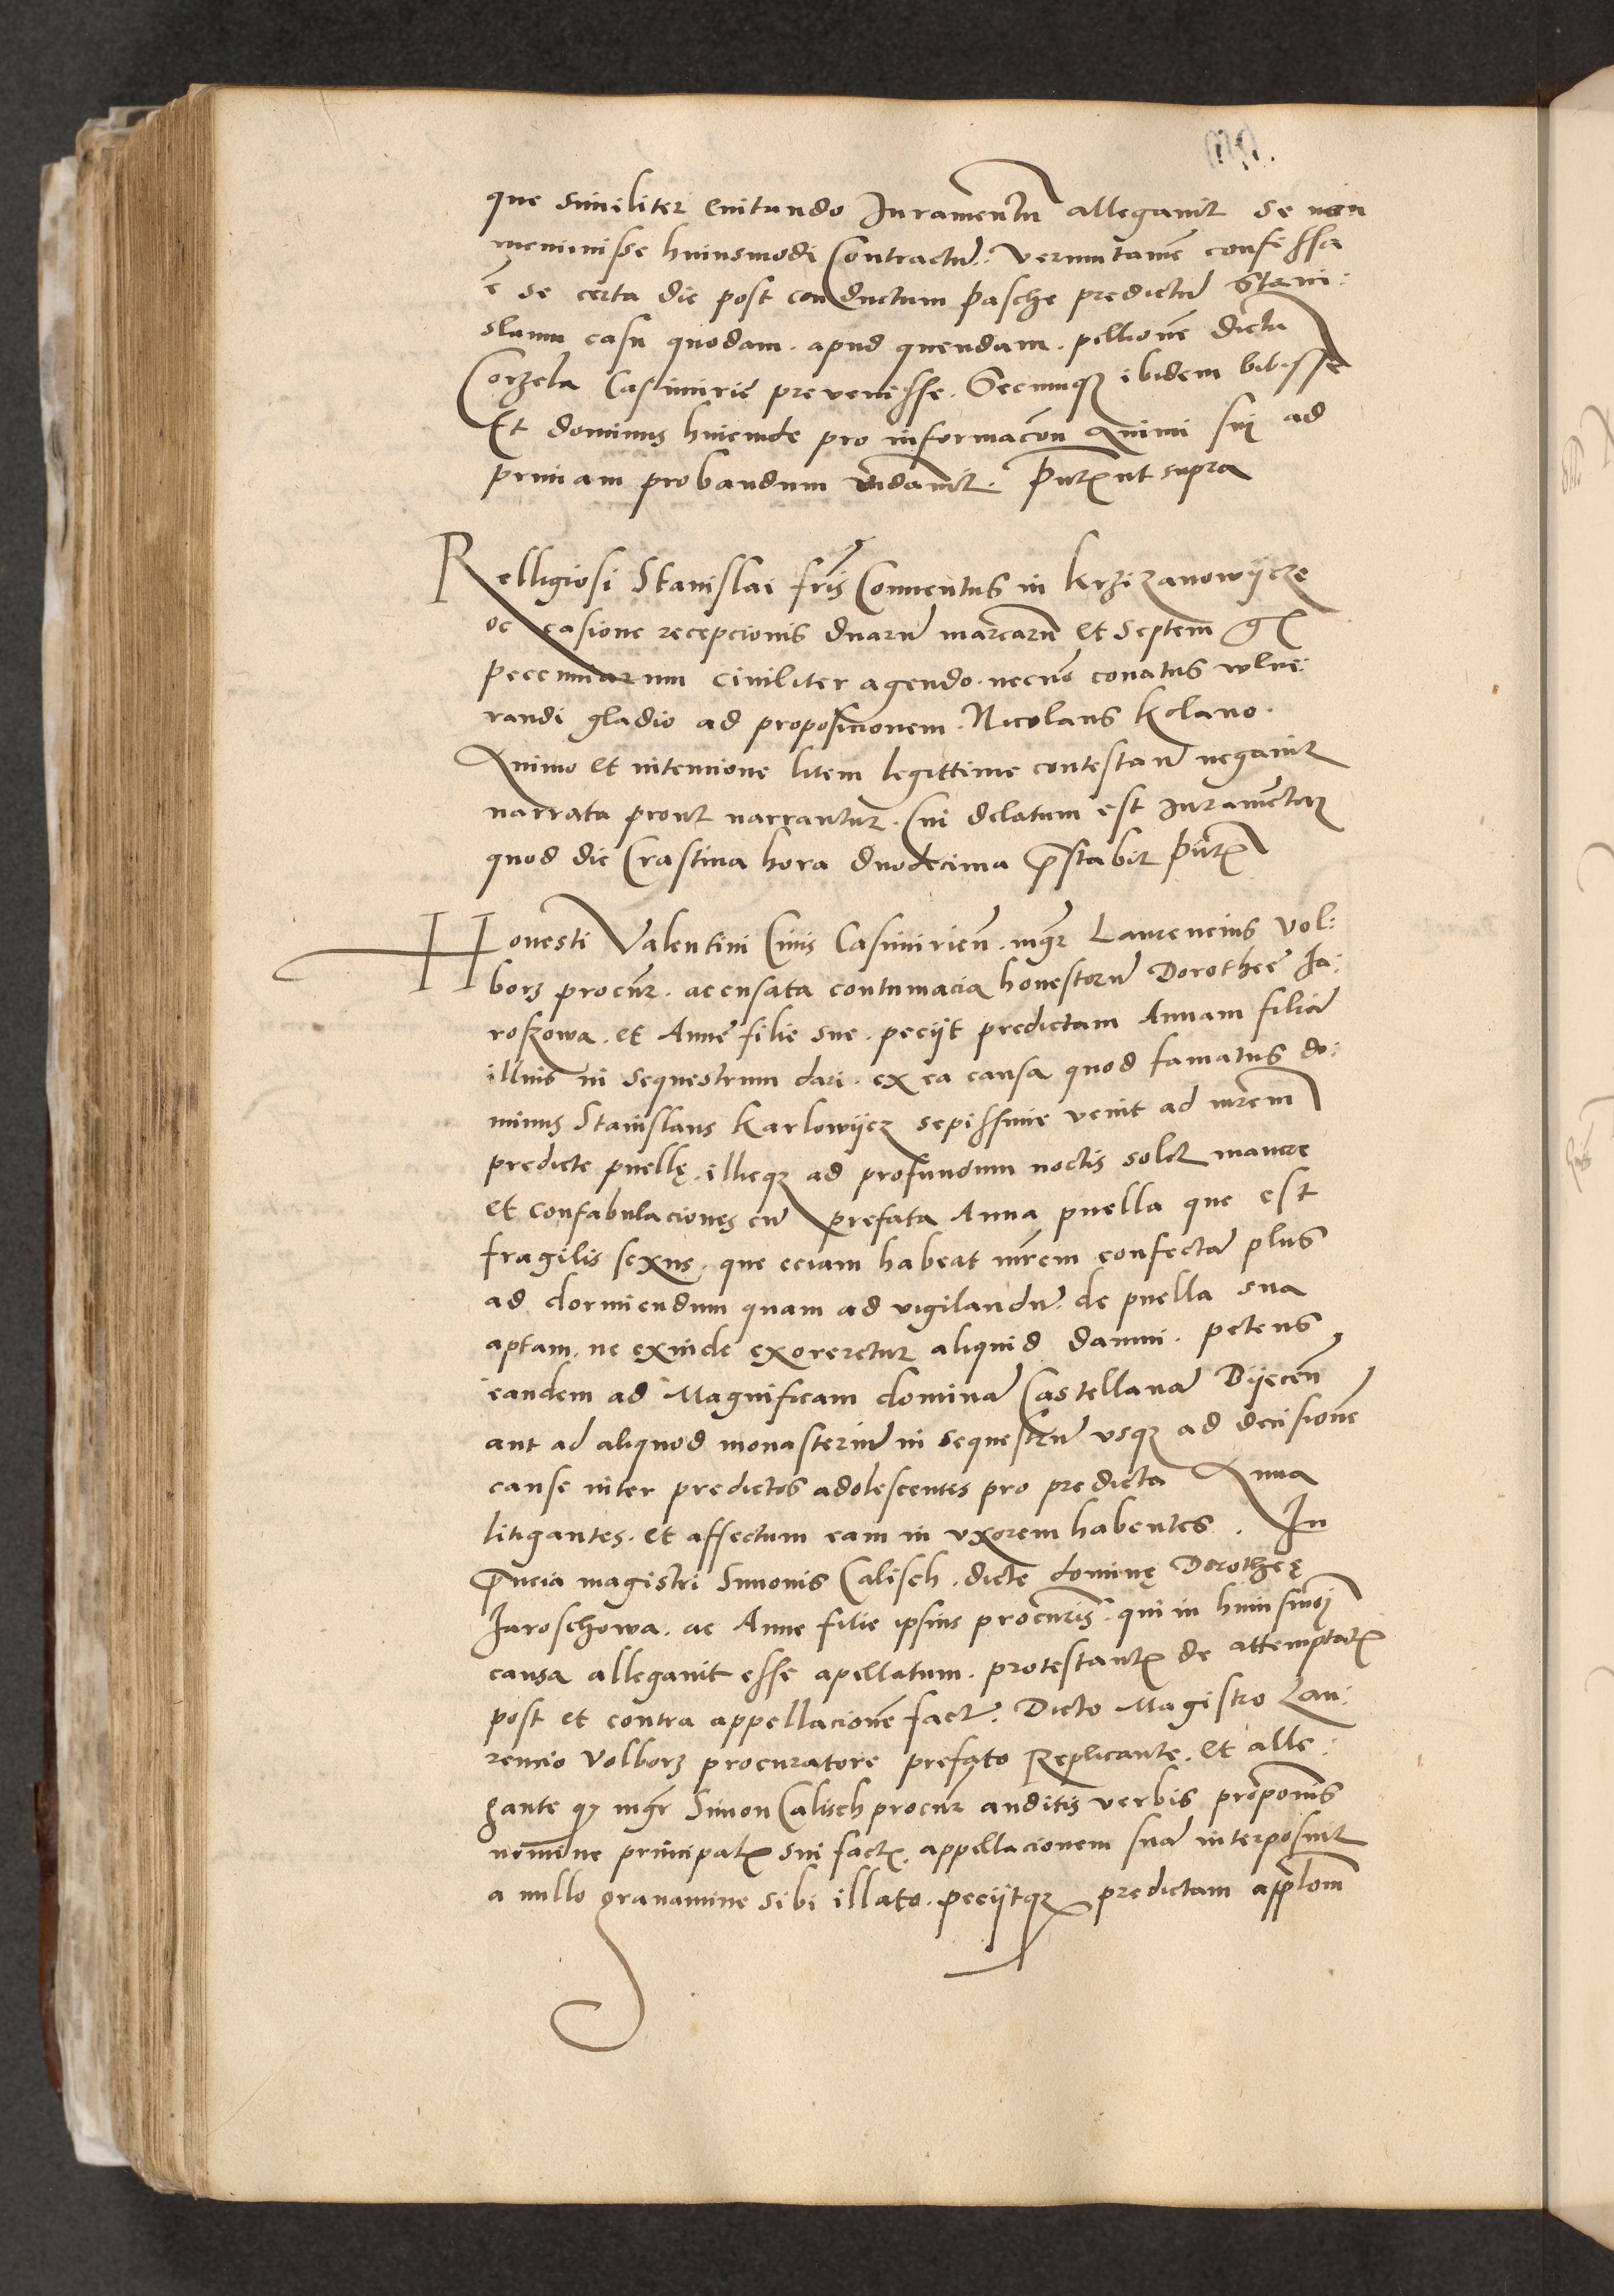 que similiter euitando Juramentũ allegauit se non
meminisse huiusmodi Contractũ. verumtamẽ confessa
ẽ se certa die post conductum pasche predictũ Stani:
slaum casu quodam. apud quendam. pellionẽ dictũ
Corzela Casimiriẽ prevenisse. Secumqȝ ibidem bibisse
Et dominus huiemde pro informacõn Animi sui ad
primam probandum vidauit. Pñtꝭ ut supra
Relligiosi Stanislai fris Conuentus in Krzizanowycze
occasione recepcionis duarũ marcarũ et septem gꝭ
pecuniarum ciuiliter agendo. necnõ conatus vlne:
randi gladio ad proposicionem. Nicolaus Kolano.
Animo et intencione litem legittime contestañ negauit
narrata prout narrantur. Cui delatum est Juramentũ
quod die Crastina hora duodecima p̃stabit Pñtꝭ
Honesti Valentini Ciuis Casimirieñ. mgr̃ Laurencius Vol:
borz procur̃. accusata contumacia honestorũ Dorothee Ja:
roszowa. et Anne filie sue. peciit predictam Annam filiã
illius in sequestrum dari. ex ea causa quod famatus do:
minus Stanislaus Karlowycz sepissime venit ad mr̃em
predicte puellę. illicqȝ ad profundum noctis solet manere
et confabulaciones cũ prefata Anna puella que est
fragilis sexus. que eciam habeat mr̃em confectã plus
ad dormiendum quam ad vigilandũ. de puella sua
aptam. ne exinde exoreretur aliquid damni. petens
eandem ad Magnificam dominã Castellanã Byeceñ
aut ad aliquod monasteriũ in sequestrũ vsqȝ ad decisionẽ
cause inter predictos adolescentes pro predicta Anna
litigantes. et affectum eam in vxorem habentes. In
p̃ncia magistri Simonis Calisch. dicte dominę Dorotheę
Jaroschowa. ac Anne filie ipsius procuris. qui in huiusmõi
causa allegauit esse apellatum. protestantꝭ de attemptatꝭ
post et contra appellacionẽ fact̃. Dicto Magistro Lau:
rencio Volborz procuratore prefato Replicante. et alle:
gante qȝ mgr̃ Simon Calisch procur̃ auditis verbis proponis
nomine principalꝭ sui factꝭ. appellacionem suã interposuit
a nullo grauamine sibi illato. peciitqȝ predictam applom̃